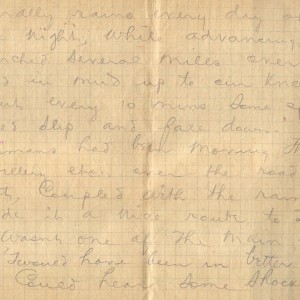 nally rains every day or
night, while advancing
rched several miles over
d in mud up to our kne
every 10 mins some o
ed slip and fall down.
mans had been moving th
llery over the road
Coupled with the rain
de it a nice route to
wasn't one of the main
would have been in better
Could hear some